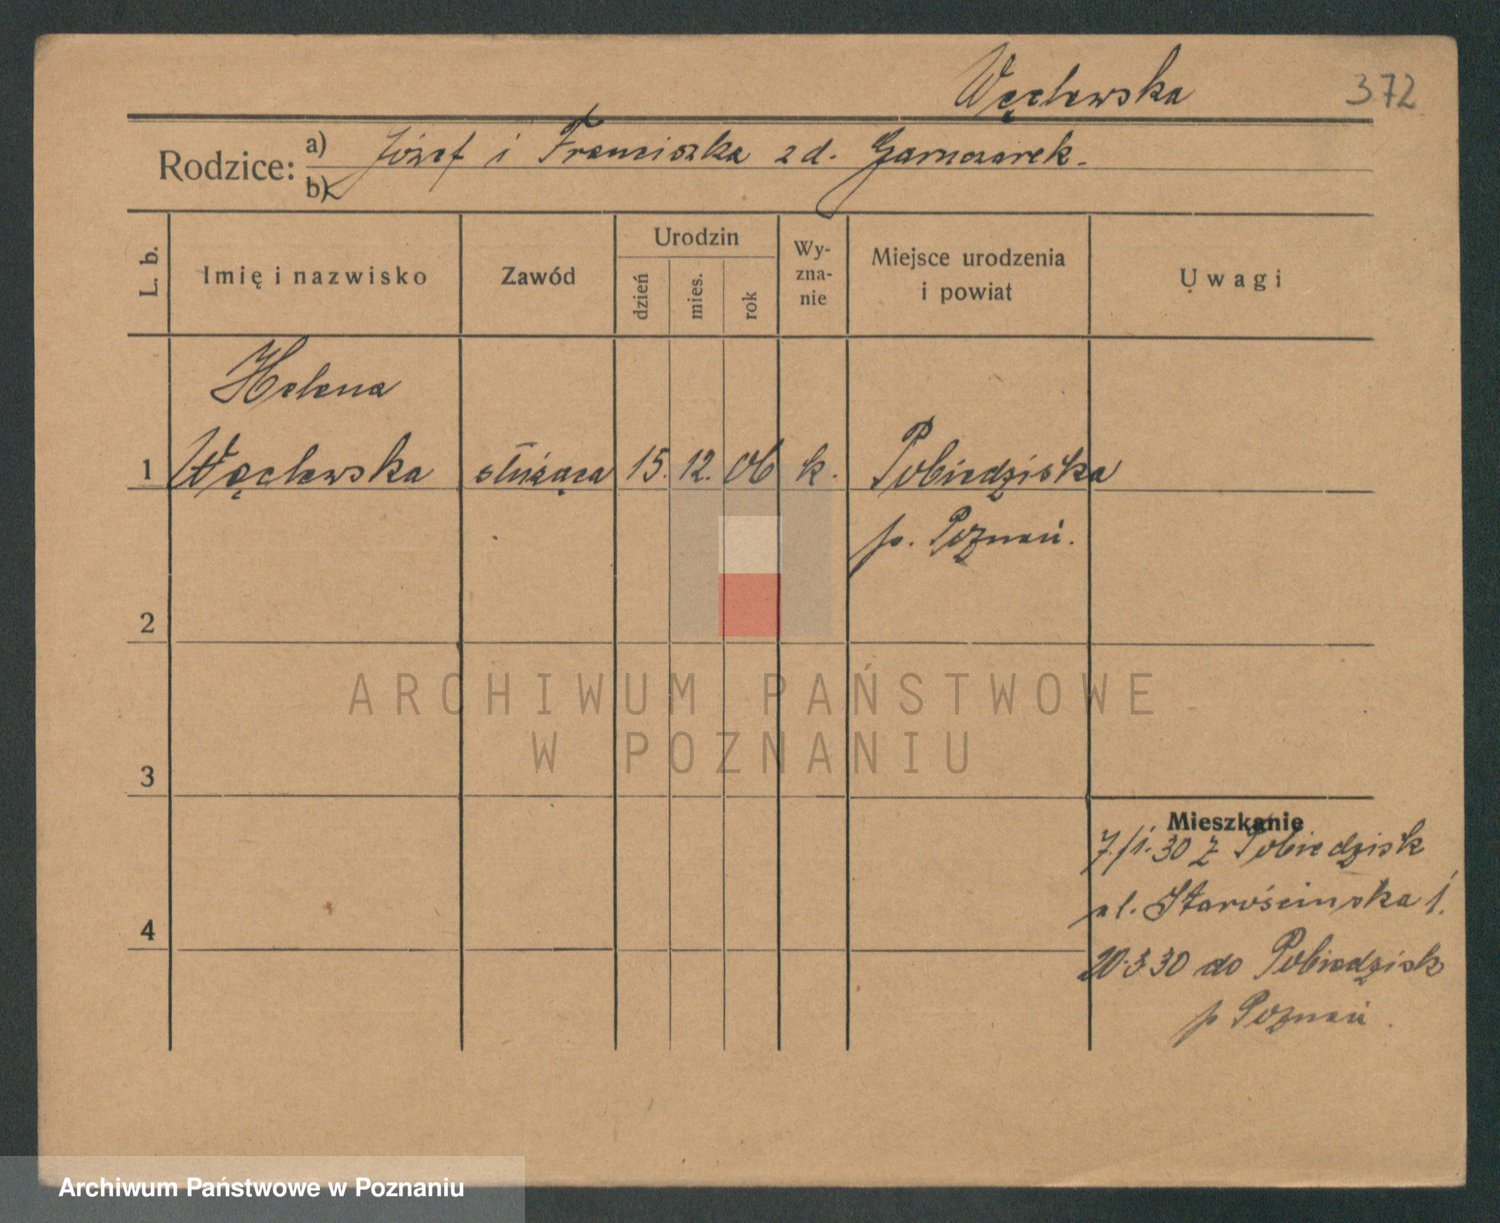 Węclewska 372
Rodzice: a) Józef i Franciszka zd. Garnczarek.
b)
L. b.
Imię i nazwisko
Zawód
Urodzin
dzień
mies.
rok
Wy-
zna-
nie
Miejsce urodzenia
i powiat
Uwagi
Helena
1 Węclewska służąca 15. 12. 06 k. Pobiedziska
p. Poznań.
2
3
4
ARCHIWUM PAŃSTWOWE
W POZNANIU
Mieszkanie
7/1.30 z Pobiedzisk
ul. Starościńska 1.
20.3 30 do Pobiedzisk
p Poznań.
Archiwum Państwowe w Poznaniu